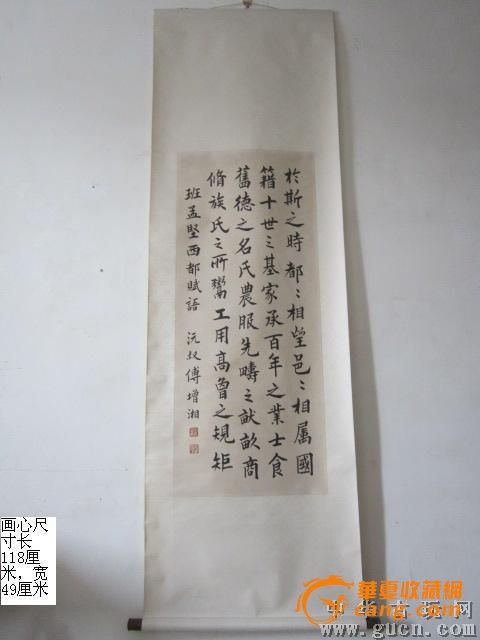 於斯之時都〻相望邑〻相属國
籍十世之基家承百年之業士食
舊德之名氏農服先疇之畎畝商
脩族氏之所鬻工用高曾之規矩
班孟堅西都賦語 沅叔傅增湘
画心尺
寸长
118厘
米，宽
49厘米
華夏收藏網
cang.com
中华古玩网
www.gucn.com